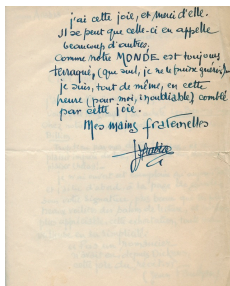 j'ai cette joie, et merci d'elle.
Il se peut que celle-ci en appelle
beaucoup d'autres.
Comme notre MONDE est toujours
terraqué, (que seul, je ne le puisse guérir),
je suis, tout de même, en cette
heure (pour moi, inoubliable) comblé
par cette joie.
Mes mains fraternelles